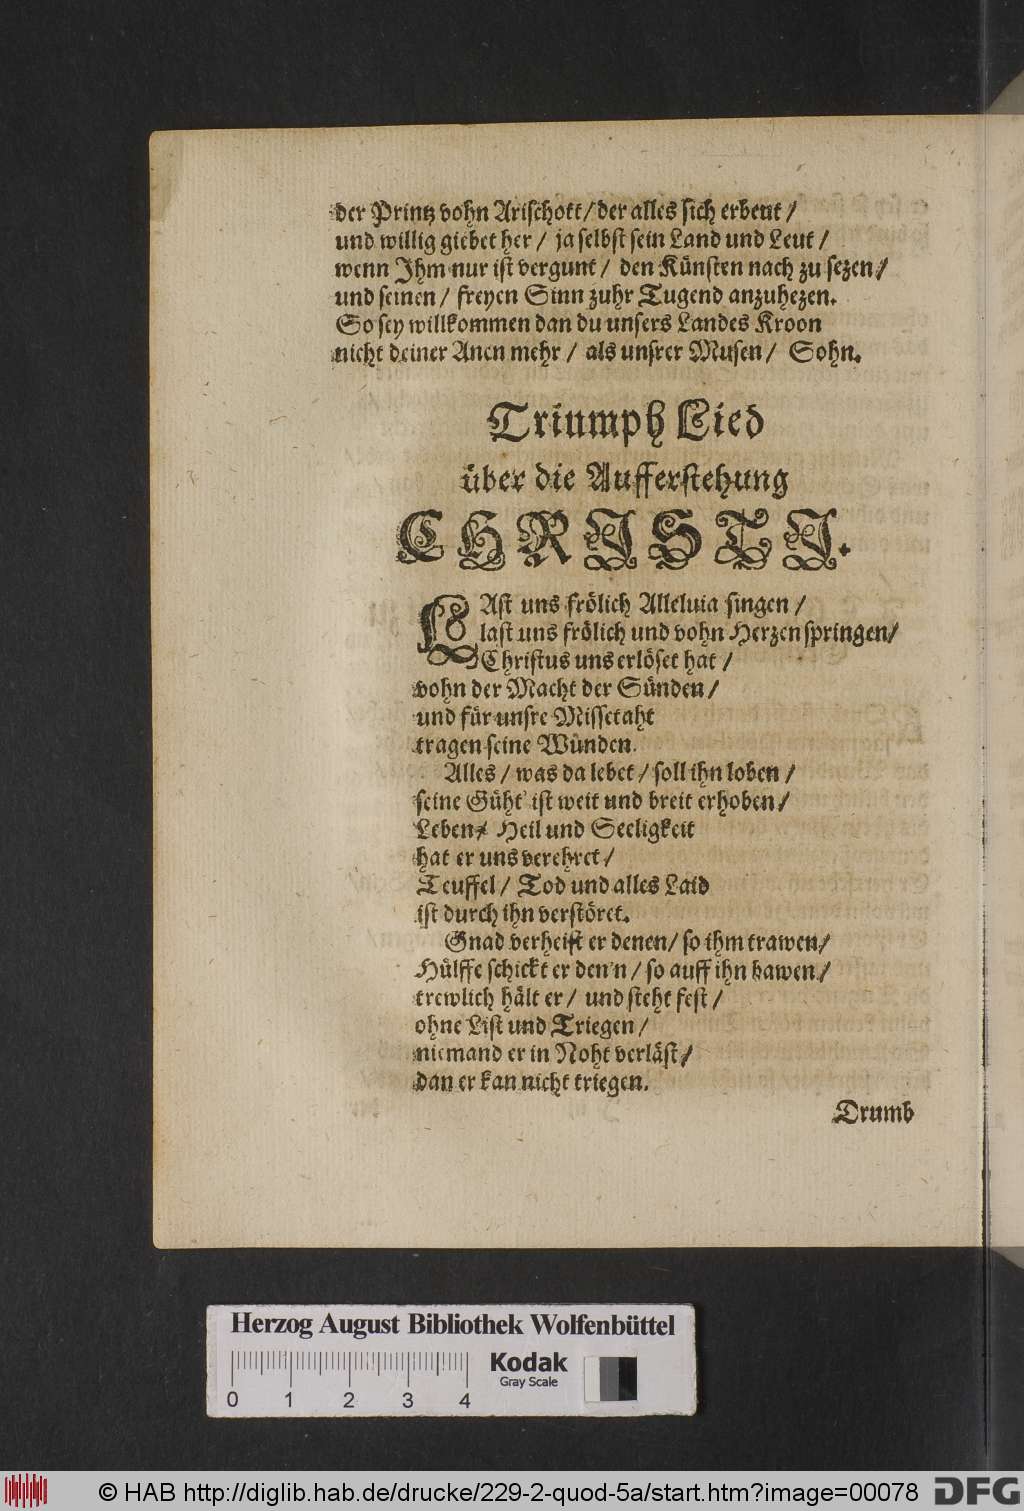 der Printz vohn Arischott / der alles sich erbeut /
und willig giebet her / ja selbst sein Land und Leut /
wenn Jhm nur ist vergunt / den Künsten nach zu sezen /
und seinen / freyen Sinn zuhr Tugend anzuhezen.
So sey willkommen dan du unsers Landes Kroon
nicht deiner Anen mehr / als unsrer Musen / Sohn.
Triumph Lied
über die Aufferstehung
CHRJSTJ.
LAst uns frölich Alleluia singen /
last uns frölich und vohn Herzen springen /
Christus uns erlöset hat /
vohn der Macht der Sünden /
und für unsre Missetaht
tragen seine Wunden.
Alles / was da lebet / soll ihn loben /
seine Güht' ist weit und breit erhoben /
Leben / Heil und Seeligkeit
hat er uns verehret /
Teuffel / Tod und alles Laid
ist durch ihn verstöret.
Gnad verheist er denen / so ihm trawen /
Hülffe schickt er den'n / so auff ihn bawen /
trewlich hält er / und steht fest /
ohne List und Triegen /
niemand er in Noht verläst /
dan er kan nicht triegen.
Drumb
Herzog August Bibliothek Wolfenbüttel
Kodak
Gray Scale
0 1 2 3 4
© HAB http://diglib.hab.de/drucke/229-2-quod-5a/start.htm?image=00078
DFG